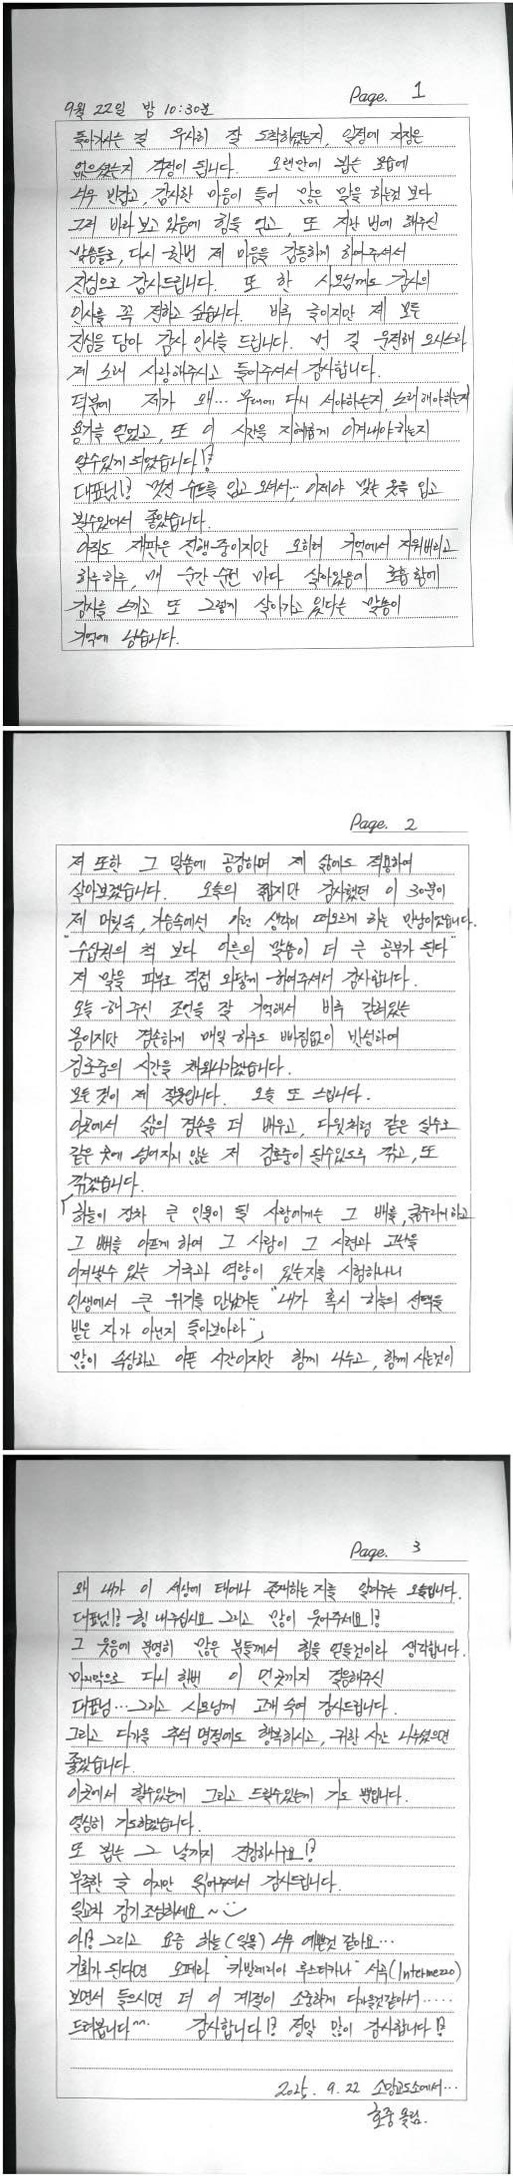 Page. 1
9월 22일 밤 10:30분
돌아가시는 길 무사히 잘 도착하셨는지, 일정에 지장은
없으셨는지 걱정이 됩니다. 오랜만에 뵙는 모습에
너무 반갑고, 감사한 마음이 들어 많은 말을 하는것 보다
그저 바라보고 있음에 힘을 얻고, 또 지난 번에 해주신
말씀들로, 다시 한번 제 마음을 감동하게 하여주셔서
진심으로 감사드립니다. 또 한 사모님께도 감사의
인사를 꼭 전하고 싶습니다. 비록 글이지만 제 모든
진심을 담아 감사 인사를 드립니다. 먼 길 운전해 오시느라
제 노래 사랑해주시고 들어주셔서 감사합니다.
덕분에 제가 왜... 무대에 다시 서야하는지, 노래해야하는지
용기를 얻었고, 또 이 시간을 지혜롭게 이겨내야하는지
알수있게 되었습니다!!
대표님!! 멋진 슈트를 입고 오셔서... 이제야 맞는 옷을 입고
뵐수있어서 좋았습니다.
아직도 재판은 진행중이지만 오히려 기억에서 지워버리고
하루하루, 매 순간 순간 마다 살아있음에 호흡함에
감사를 느끼고 또 그렇게 살아가고 있다는 말씀이
기억에 남습니다.
Page. 2
저 또한 그 말씀에 공감하며 제 삶에도 적용하여
살아보겠습니다. 오늘의 짧지만 감사했던 이 30분이
제 머릿속, 가슴속에서 이런 생각이 떠오르게 하는 만남이었습니다.
"수십권의 책 보다 어른의 말씀이 더 큰 공부가 된다"
저 말을 피부로 직접 와닿게 하여주셔서 감사합니다.
오늘 해주신 조언을 잘 기억해서 비록 갇혀있는
몸이지만 겸손하게 매일 하루도 빠짐없이 반성하며
김호중의 시간을 채워나가겠습니다.
모든 것이 제 잘못입니다. 오늘 또 느낍니다.
이곳에서 삶의 겸손을 더 배우고, 다윗처럼 같은 실수로
같은 곳에 넘어지지 않는 저 김호중이 될수있도록 깎고, 또
깎겠습니다.
「하늘이 장차 큰 인물이 될 사람에게는 그 배를, 굶주리게 하고
그 뼈를 아프게 하여 그 사람이 그 시련과 고난을
이겨낼수 있는 기국과 역량이 있는지를 시험하나니
인생에서 큰 위기를 만났거든 "내가 혹시 하늘의 선택을
받은 자가 아닌지 돌아보아라"」
많이 속상하고 아픈 시간이지만 함께 나누고, 함께 사는것이
Page. 3
왜 내가 이 세상에 태어나 존재하는지를 알아가는 오늘입니다.
대표님!! 힘 내주십시요 그리고 많이 웃어주세요!!
그 웃음에 분명히 많은 분들께서 힘을 얻을것이라 생각합니다.
마지막으로 다시 한번 이 먼곳까지 걸음해주신
대표님... 그리고 사모님께 고개 숙여 감사드립니다.
그리고 다가올 추석 명절에도 행복하시고, 귀한 시간 나누셨으면
좋겠습니다.
이곳에서 할수있는게 그리고 드릴수있는게 기도 뿐입니다.
열심히 기도하겠습니다.
또 뵙는 그 날까지 건강하시구요!!
부족한 글 이지만 읽어주셔서 감사드립니다.
일교차 감기조심하세요~
아! 그리고 요즘 하늘(일몰) 너무 예쁜것 같아요...
기회가 된다면 오페라 "카발레리아 루스티카나" 서곡(Intermezzo)
보면서 들으시면 더 이 계절이 소중하게 다가올것같아서.....
드려봅니다^^ 감사합니다!! 정말 많이 감사합니다!!
2025. 9. 22 소망교도소에서...
호중 올림.